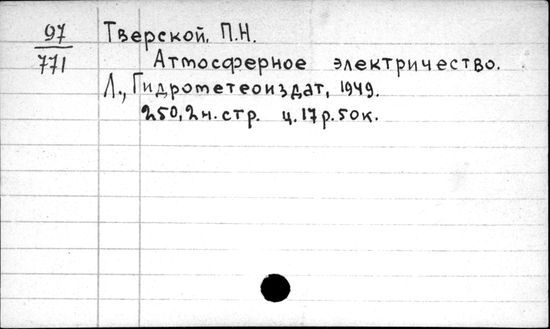 97 Тверской. П.Н.
771 Атмосферное электричество.
Л., Гидрометеоиздат, 1949.
250,2н.стр. ц.17р.50к.